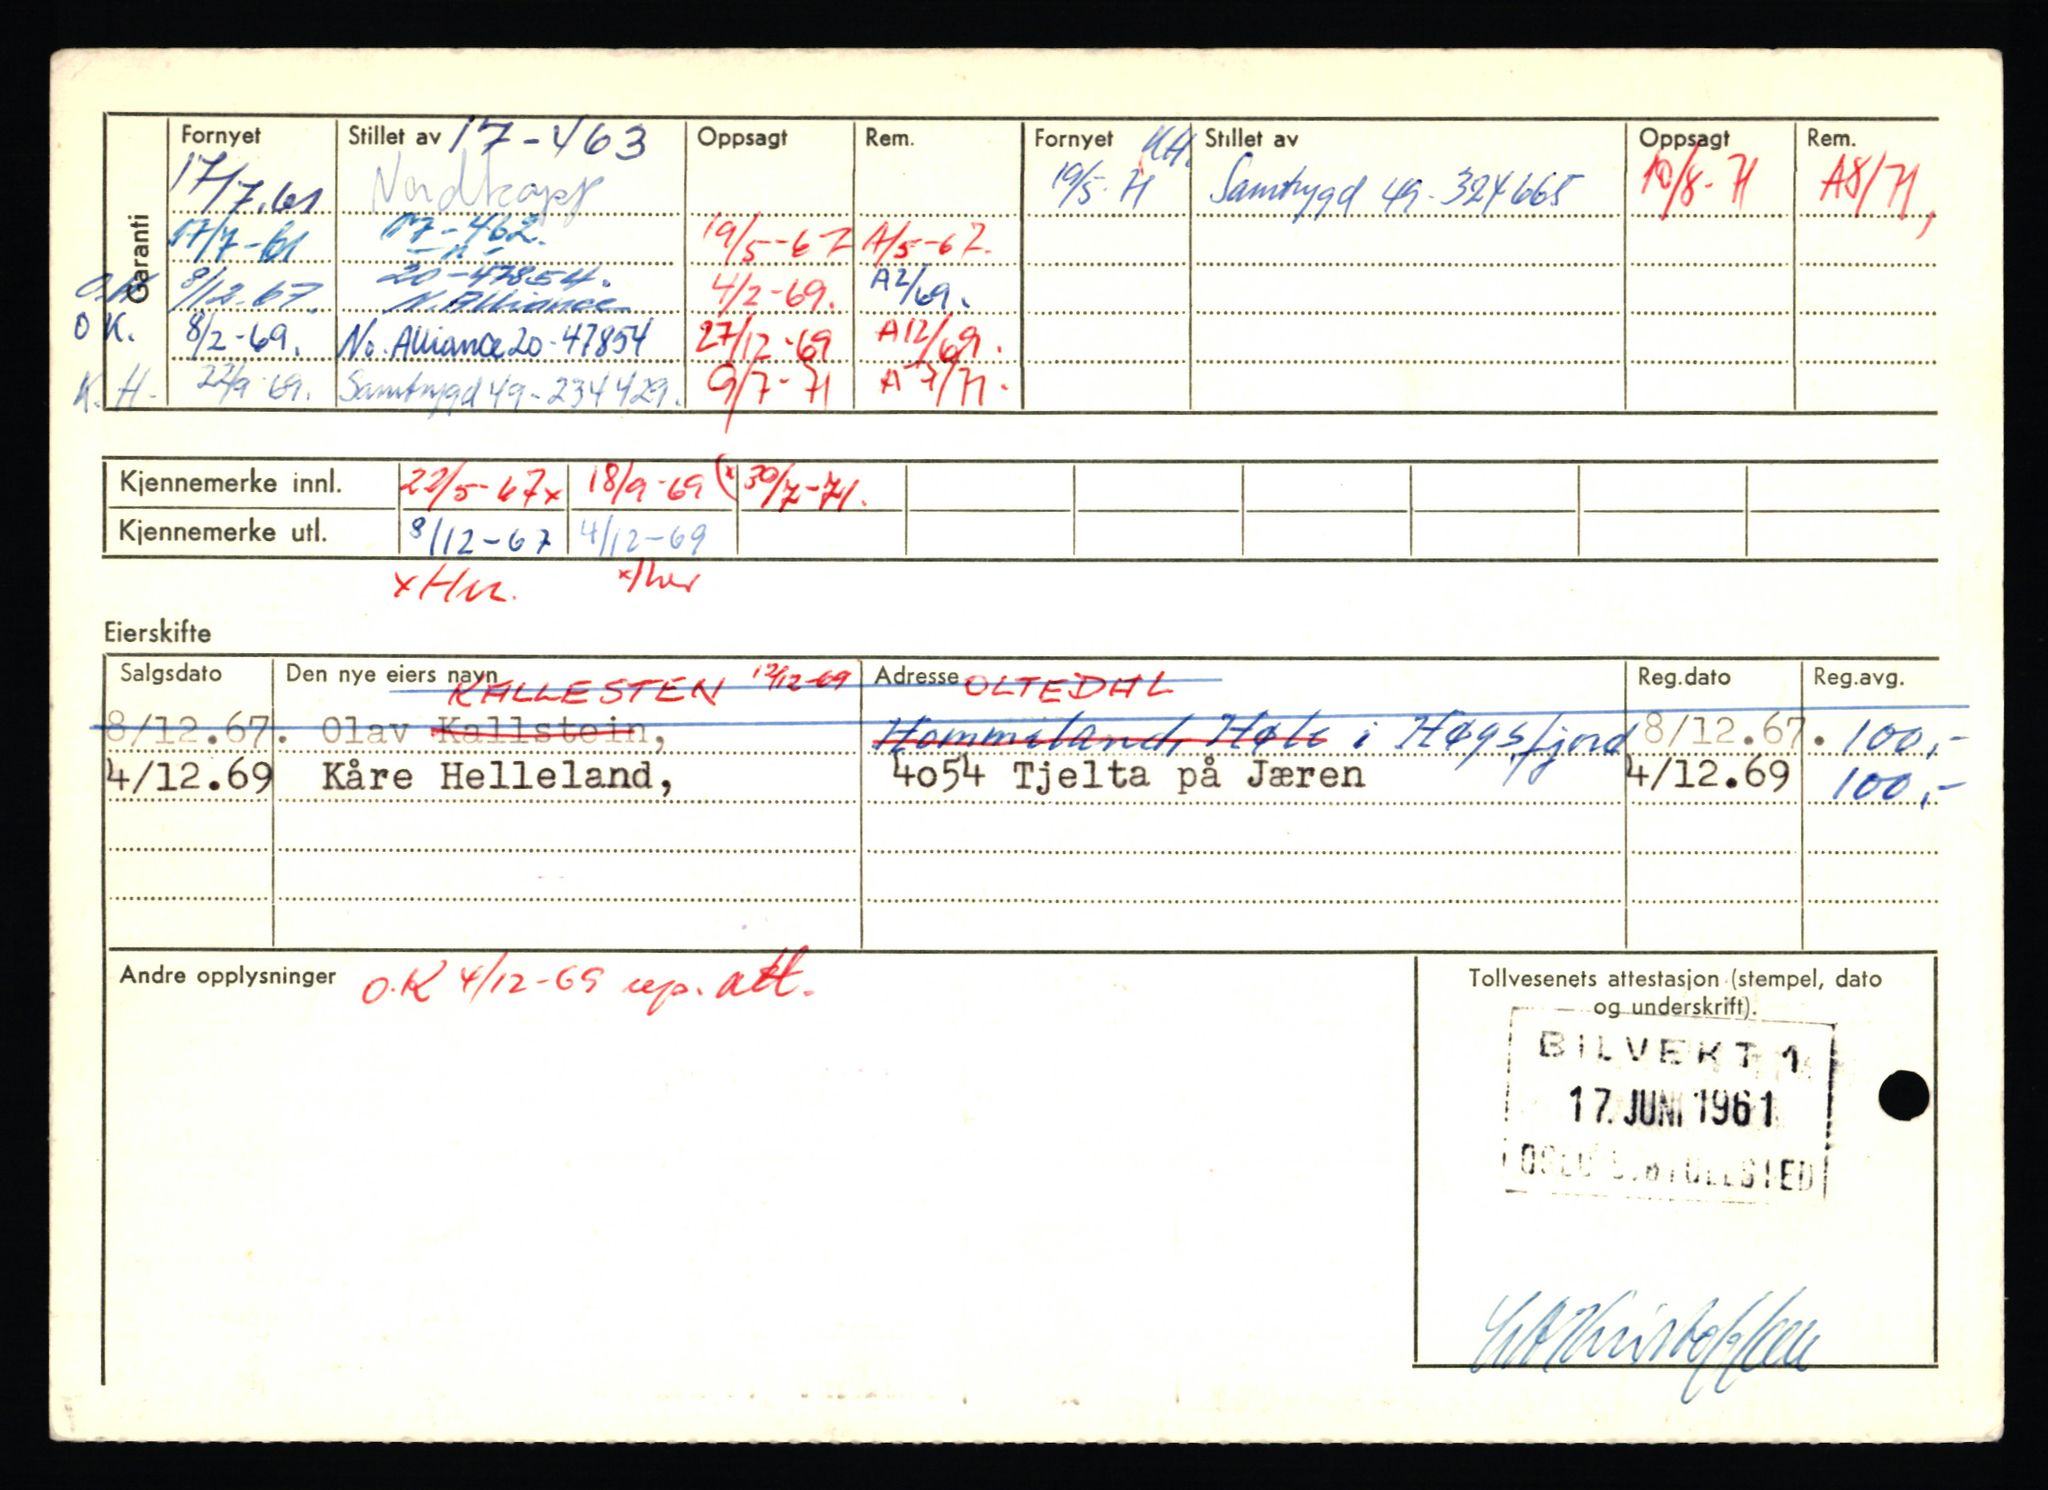 Garanti
Fornyet Stillet av 17-463 Oppsagt Rem. Fornyet K.H. Stillet av Oppsagt Rem.
17/7.61 Nordkapp 19/5-71 Samtrygd 49-324665 10/8-71 A8/71,
17/7-61 17-462. -"- 19/5-67 A/5-67.
O.K. 8/12-67. 20-47854. N. Alliance 4/2-69. A2/69.
O K. 8/2-69. No. Alliance 20-47854 27/12-69 A12/69.
K. H. 22/9-69. Samtrygd 49-234429. 9/7-71 A7/71.
Kjennemerke innl. 22/5-67x 18/9-69 (x 30/7-71.
Kjennemerke utl. 8/12-67 4/12-69
Eierskifte
Salgsdato Den nye eiers navn Adresse Reg.dato Reg.avg.
KALLESTEN 12/12-69 OLTEDAL
8/12.67. Olav Kallstein, Hommeland, Høle i Høgsfjord 8/12.67. 100,-
4/12.69 Kåre Helleland, 4o54 Tjelta på Jæren 4/12.69 100,-
Andre opplysninger O.K 4/12-69 att.
Tollvesenets attestasjon (stempel, dato
og underskrift).
BILVEKT 1
17. JUNI 1961